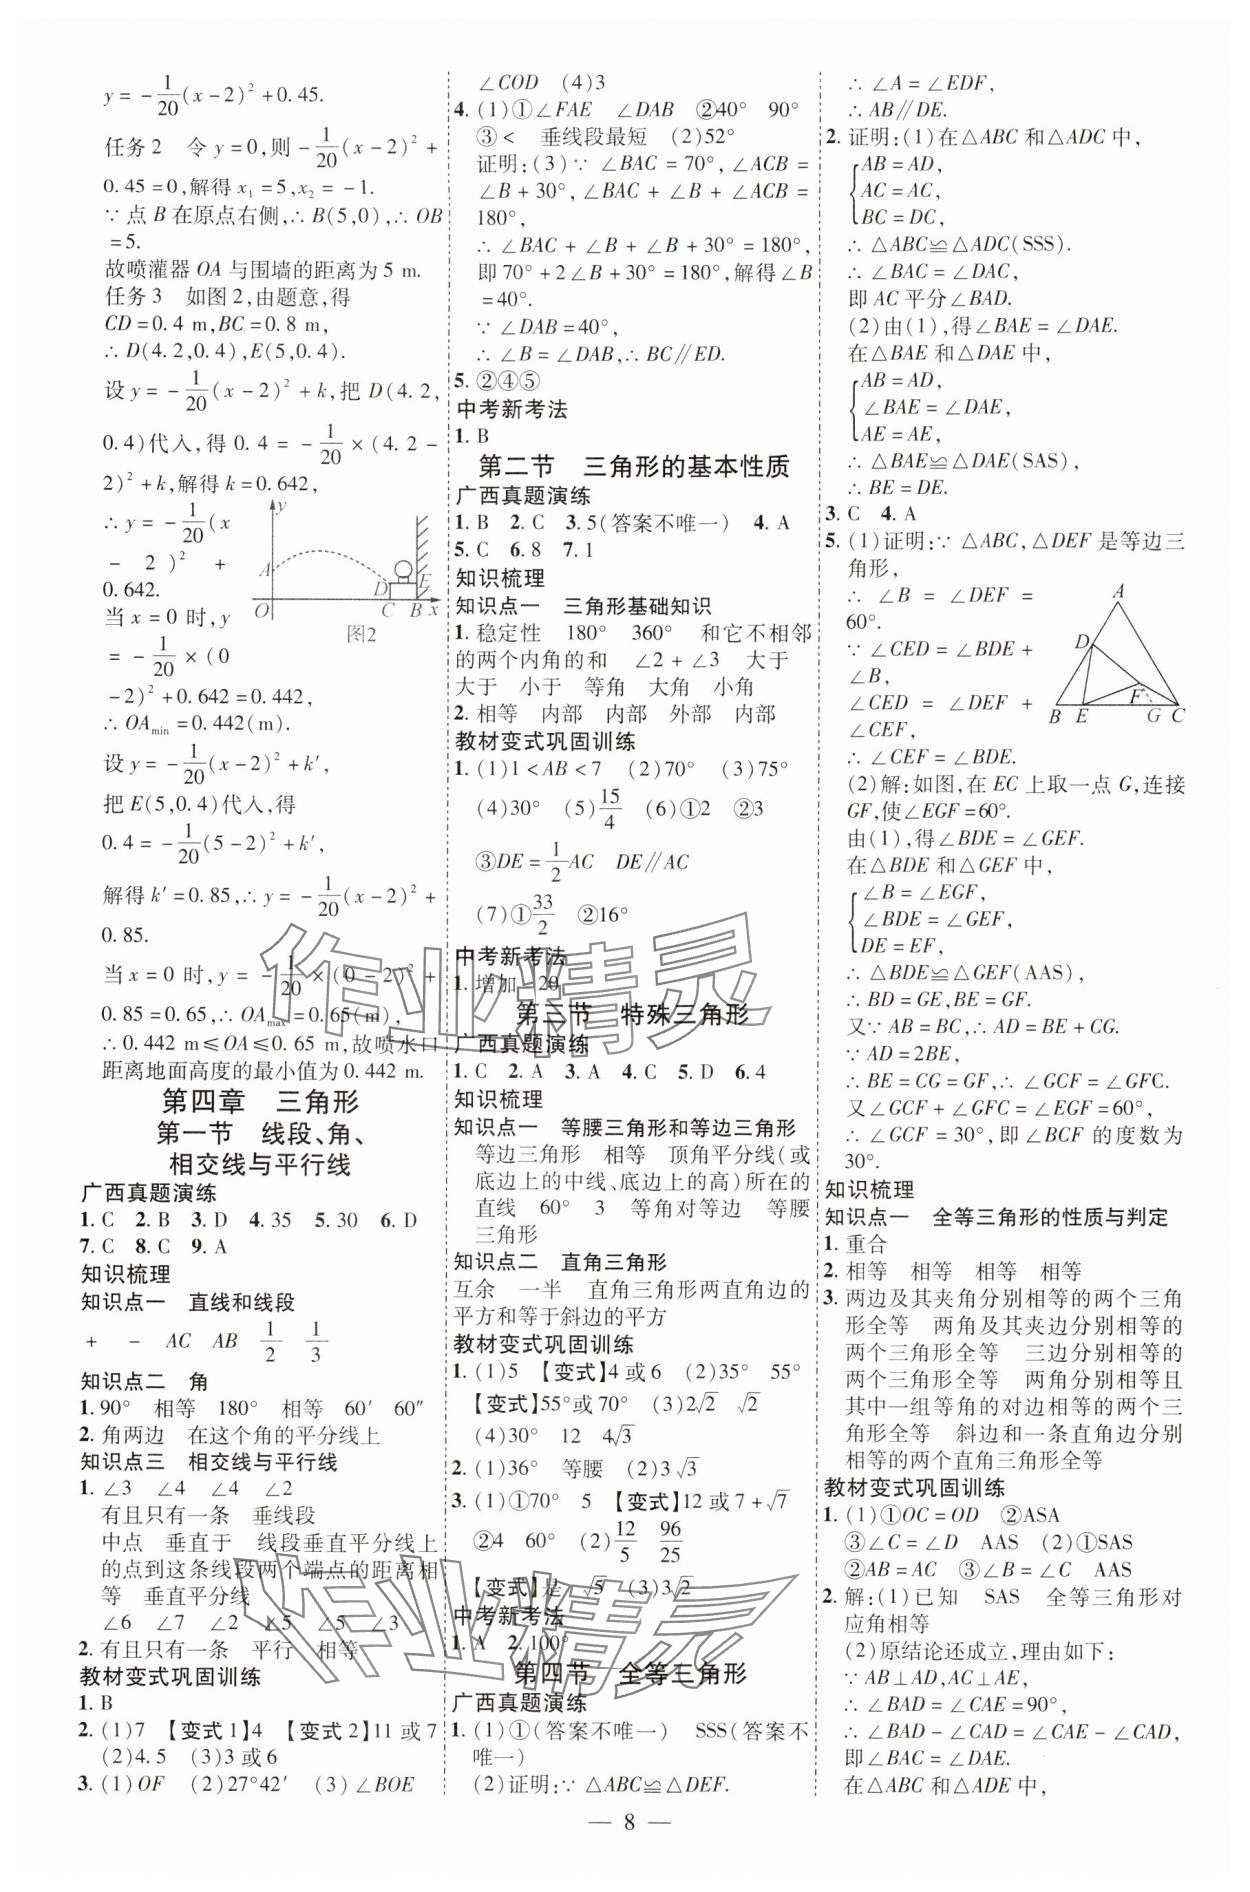 y=-1/20(x-2)²+0.45.
任务2　令y=0,则-1/20(x-2)²+
0.45=0,解得x₁=5,x₂=-1.
∵点B在原点右侧,∴B(5,0),∴OB
=5.
故喷灌器OA与围墙的距离为5 m.
任务3　如图2,由题意,得
CD=0.4 m,BC=0.8 m,
∴D(4.2,0.4),E(5,0.4).
设y=-1/20(x-2)²+k,把D(4.2,
0.4)代入,得0.4=-1/20×(4.2-
2)²+k,解得k=0.642,
∴y=-1/20(x
-2)²+
0.642.
当x=0时,y
=-1/20×(0
-2)²+0.642=0.442,
y
A
D
E
O
C
B
x
图2
∴OAmin=0.442(m).
设y=-1/20(x-2)²+k′,
把E(5,0.4)代入,得
0.4=-1/20(5-2)²+k′,
解得k′=0.85,∴y=-1/20(x-2)²+
0.85.
当x=0时,y=-1/20×(0-2)²+
0.85=0.65,∴OAmax=0.65(m),
∴0.442 m≤OA≤0.65 m,故喷水口
距离地面高度的最小值为0.442 m.
第四章　三角形
第一节　线段、角、
相交线与平行线
广西真题演练
1.C　2.B　3.D　4.35　5.30　6.D
7.C　8.C　9.A
知识梳理
知识点一　直线和线段
+　-　AC　AB　1/2　1/3
知识点二　角
1.90°　相等　180°　相等　60′　60″
2.角两边　在这个角的平分线上
知识点三　相交线与平行线
1.∠3　∠4　∠4　∠2
有且只有一条　垂线段
中点　垂直于　线段垂直平分线上
的点到这条线段两个端点的距离相
等　垂直平分线
∠6　∠7　∠2　∠5　∠5　∠3
2.有且只有一条　平行　相等
教材变式巩固训练
1.B
2.(1)7　【变式1】4　【变式2】11或7
(2)4.5　(3)3或6
3.(1)OF　(2)27°42′　(3)∠BOE
∠COD　(4)3
4.(1)①∠FAE　∠DAB　②40°　90°
③<　垂线段最短　(2)52°
证明:(3)∵∠BAC=70°,∠ACB=
∠B+30°,∠BAC+∠B+∠ACB=
180°,
∴∠BAC+∠B+∠B+30°=180°,
即70°+2∠B+30°=180°,解得∠B
=40°.
∵∠DAB=40°,
∴∠B=∠DAB,∴BC∥ED.
5.②④⑤
中考新考法
1.B
第二节　三角形的基本性质
广西真题演练
1.B　2.C　3.5(答案不唯一)　4.A
5.C　6.8　7.1
知识梳理
知识点一　三角形基础知识
1.稳定性　180°　360°　和它不相邻
的两个内角的和　∠2+∠3　大于
大于　小于　等角　大角　小角
2.相等　内部　内部　外部　内部
教材变式巩固训练
1.(1)1<AB<7　(2)70°　(3)75°
(4)30°　(5)15/4　(6)①2　②3
③DE=1/2AC　DE∥AC
(7)①33/2　②16°
中考新考法
1.增加　20
第三节　特殊三角形
广西真题演练
1.C　2.A　3.A　4.C　5.D　6.4
知识梳理
知识点一　等腰三角形和等边三角形
等边三角形　相等　顶角平分线(或
底边上的中线、底边上的高)所在的
直线　60°　3　等角对等边　等腰
三角形
知识点二　直角三角形
互余　一半　直角三角形两直角边的
平方和等于斜边的平方
教材变式巩固训练
1.(1)5　【变式】4或6　(2)35°　55°
【变式】55°或70°　(3)2√2　√2
(4)30°　12　4√3
2.(1)36°　等腰　(2)3√3
3.(1)①70°　5　【变式】12或7+√7
②4　60°　(2)12/5　96/25
【变式】是　√5　(3)3√2
中考新考法
1.A　2.100°
第四节　全等三角形
广西真题演练
1.(1)①(答案不唯一)　SSS(答案不
唯一)
(2)证明:∵△ABC≌△DEF.
∴∠A=∠EDF,
∴AB∥DE.
2.证明:(1)在△ABC和△ADC中,
AB=AD,
AC=AC,
BC=DC,
∴△ABC≌△ADC(SSS).
∴∠BAC=∠DAC,
即AC平分∠BAD.
(2)由(1),得∠BAE=∠DAE.
在△BAE和△DAE中,
AB=AD,
∠BAE=∠DAE,
AE=AE,
∴△BAE≌△DAE(SAS),
∴BE=DE.
3.C　4.A
5.(1)证明:∵△ABC,△DEF是等边三
角形,
∴∠B=∠DEF=
60°.
∵∠CED=∠BDE+
∠B,
∠CED=∠DEF+
∠CEF,
∴∠CEF=∠BDE.
A
D
F
B
E
G
C
(2)解:如图,在EC上取一点G,连接
GF,使∠EGF=60°.
由(1),得∠BDE=∠GEF.
在△BDE和△GEF中,
∠B=∠EGF,
∠BDE=∠GEF,
DE=EF,
∴△BDE≌△GEF(AAS),
∴BD=GE,BE=GF.
又∵AB=BC,∴AD=BE+CG.
∵AD=2BE,
∴BE=CG=GF,∴∠GCF=∠GFC.
又∠GCF+∠GFC=∠EGF=60°,
∴∠GCF=30°,即∠BCF的度数为
30°.
知识梳理
知识点一　全等三角形的性质与判定
1.重合
2.相等　相等　相等　相等
3.两边及其夹角分别相等的两个三角
形全等　两角及其夹边分别相等的
两个三角形全等　三边分别相等的
两个三角形全等　两角分别相等且
其中一组等角的对边相等的两个三
角形全等　斜边和一条直角边分别
相等的两个直角三角形全等
教材变式巩固训练
1.(1)①OC=OD　②ASA
③∠C=∠D　AAS　(2)①SAS
②AB=AC　③∠B=∠C　AAS
2.解:(1)已知　SAS　全等三角形对
应角相等
(2)原结论还成立,理由如下:
∵AB⊥AD,AC⊥AE,
∴∠BAD=∠CAE=90°,
∴∠BAD-∠CAD=∠CAE-∠CAD,
即∠BAC=∠DAE.
在△ABC和△ADE中,
— 8 —
作业精灵
作业精灵